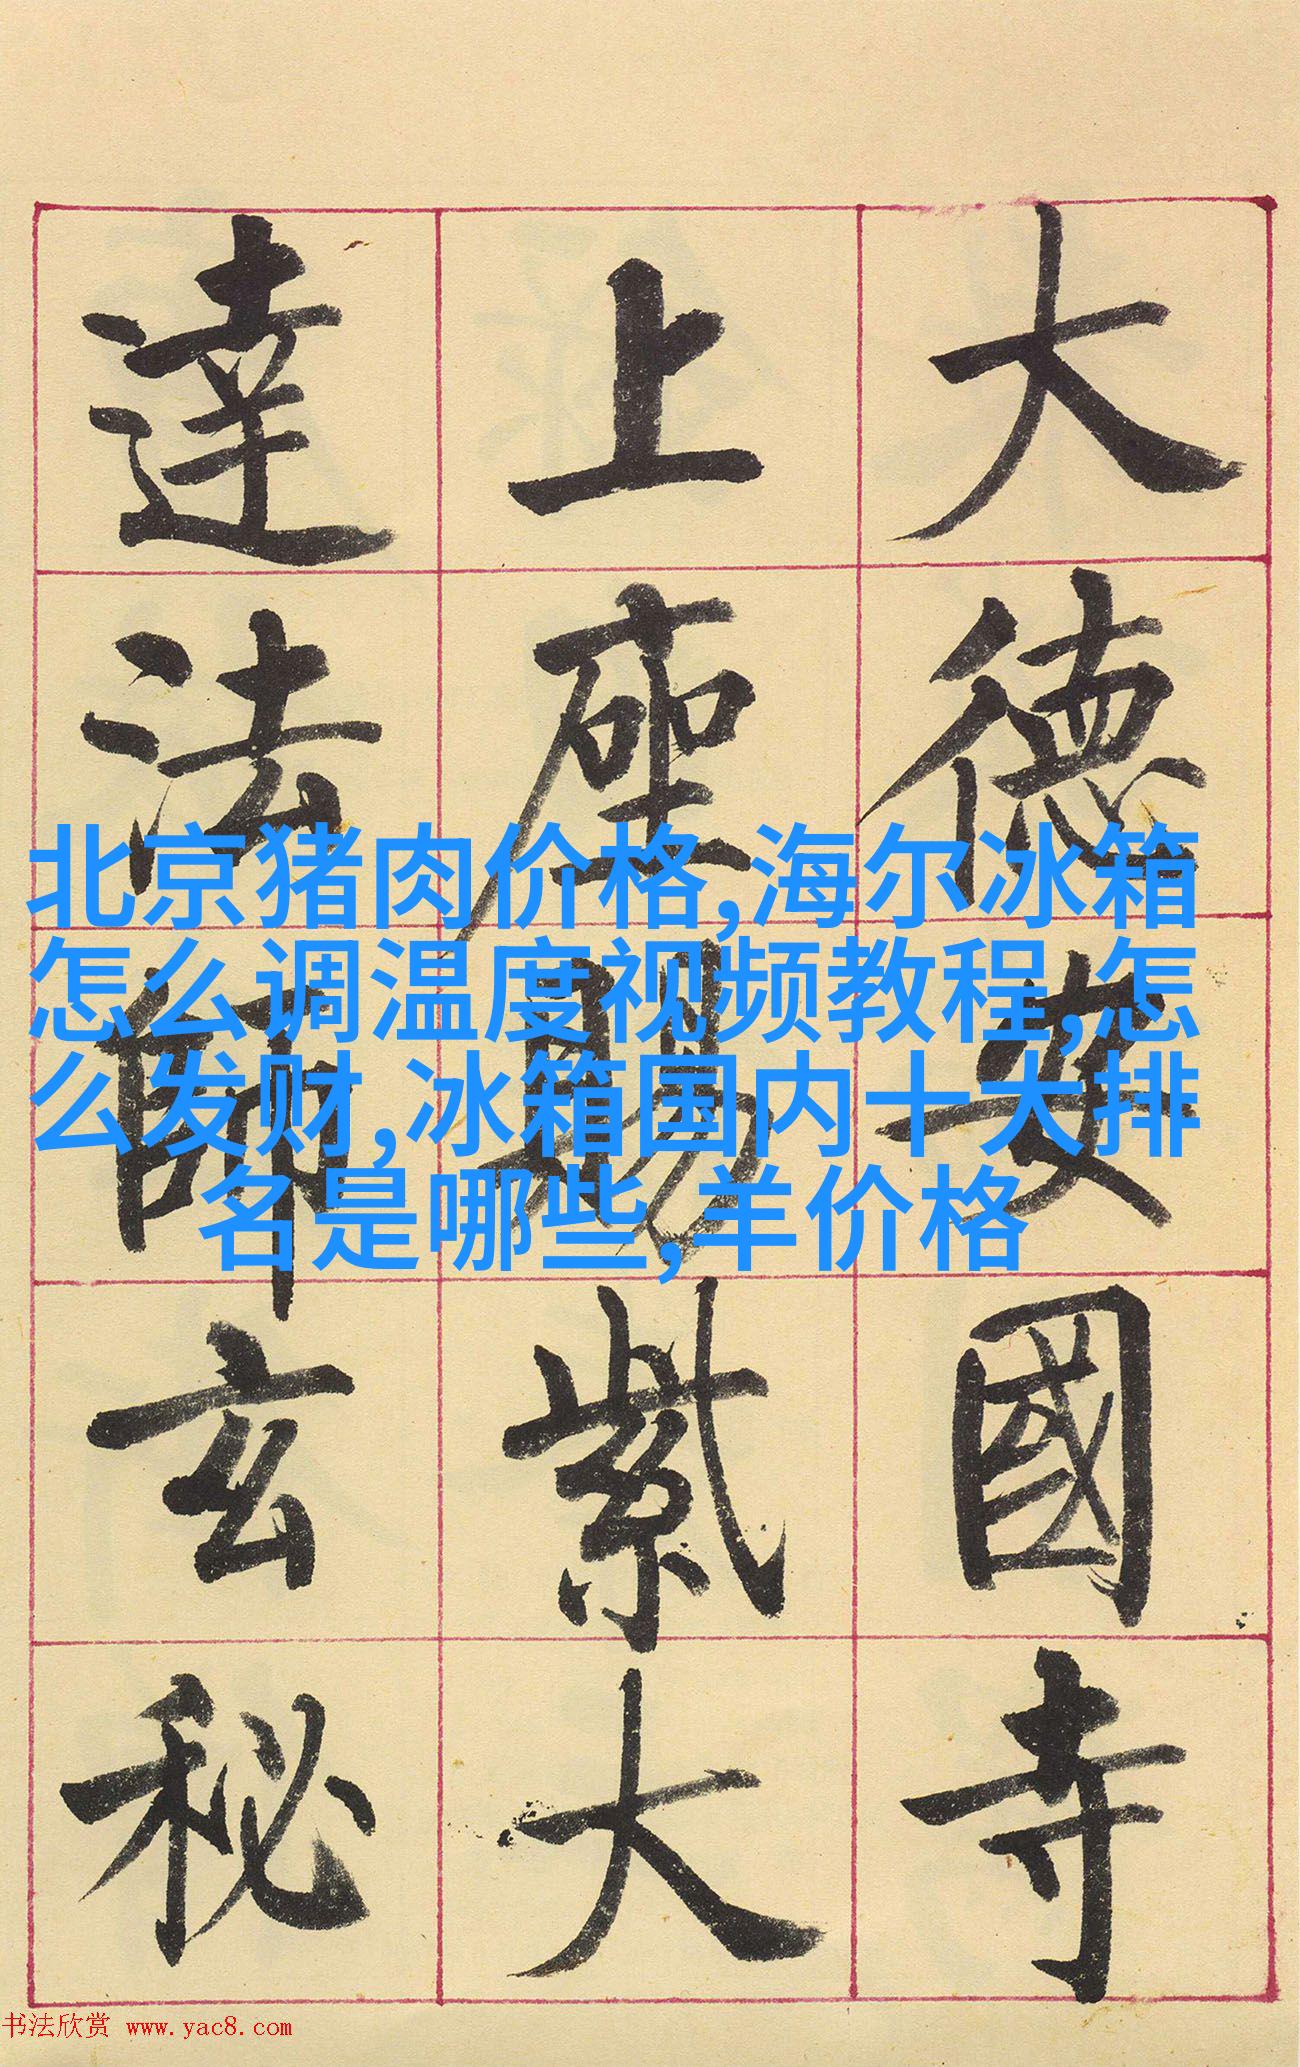 大德安國寺
上座賜紫大
達法師玄秘
北京猪肉价格,海尔冰箱
怎么调温度视频教程,怎
么发财,冰箱国内十大排
名是哪些,羊价格
书法欣赏 www.yac8.com